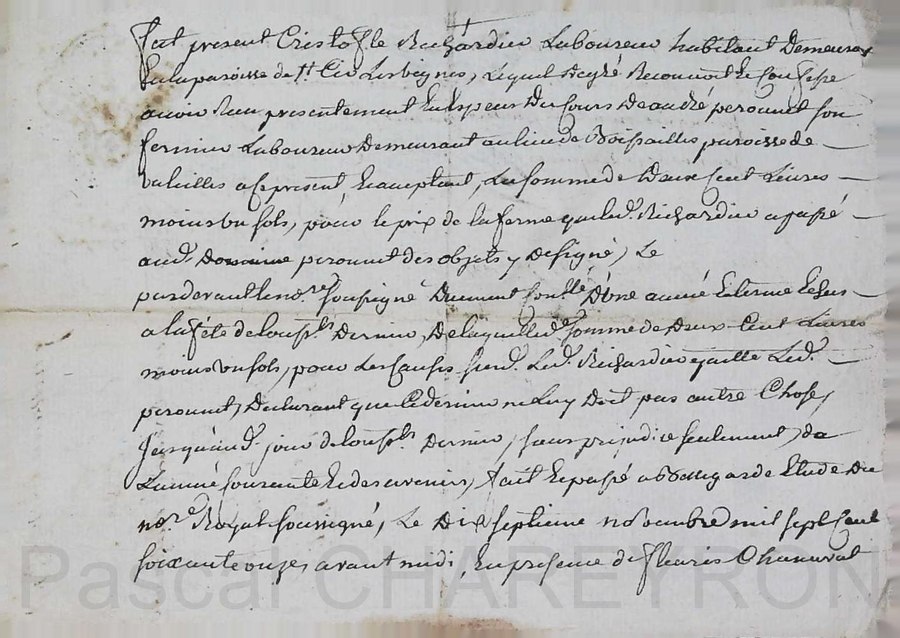 fut présent Cristofle Richardier Laboureur habitant Demeurant
En la paroisse de St Cir Les vignes, Lequel degré Reconnoit et Confesse
avoir Reçu presentement En Especes Du Cours De andré peronnet son
fermier Laboureur Demeurant au lieu de Boissailles paroisse de
valeilles a ce present Et acceptant, La somme de Deux Cent Livres
moins un sols, pour le prix de la ferme que led. Richardier a passé
aud. peronnet des objets y Designé, Le
pardevant le nore soussigné D'une année Eschue
a la fête de toussts Dernier, De laquelle de somme de Deux Cent Livres
moins un sols, pour Les Causes susd. Led. Richardier quitte Led.
peronnet, Declarant que Ce dernier ne Luy Doit pas autre Chose,
Jusqu'aud. jour de toussts Dernier, sans prejudice seulement, de
L'année Courante Et des avenirs, fait Et passé a Etude Du
nore Royal soussigné, Le Dix septieme novembre mil sept Cent
soixante onze, avant midi, En presence de fleuris
Pascal CHAREYRON